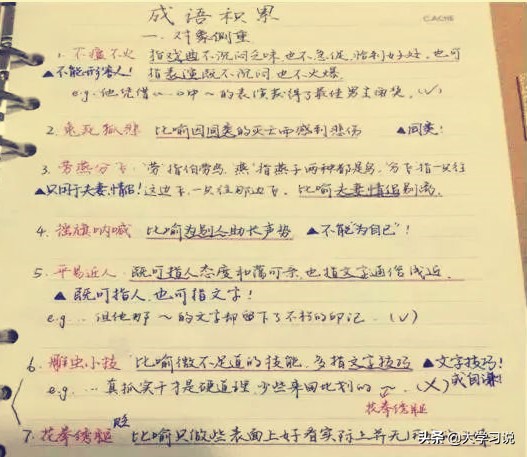 成语积累
CACHE
一、对象侧重
1. 不瘟不火 指戏曲不沉闷乏味也不急促,恰到好处,也可
▲不能形容人! 指表演既不沉闷也不火爆.
e.g. 他凭借《…》中~的表演获得了最佳男主角奖.(√)
2. 兔死狐悲 比喻因同类的灭亡而感到悲伤 ▲同类!
3. 劳燕分飞 "劳"指伯劳鸟,"燕"指燕子两种都是鸟."分飞"指一只往
▲只用于夫妻,情侣! 这边飞,一只往那边飞. 比喻夫妻情侣别离.
4. 摇旗呐喊 比喻为别人助长声势 ▲不能"为自己"!
5. 平易近人. 既可指人态度和蔼可亲,也指文字通俗浅近.
▲ 既可指人,也可指文字!
e.g. … 但他那~的文字却留下了不朽的印记.(√)
6. 雕虫小技 比喻微不足道的技能,多指文字技巧 ▲文字技巧!
e.g. … 真抓实干才是硬道理,少些来回比划的~.(×) 或自谦!
花拳绣腿
7. 花拳绣腿 贬 比喻只做些表面上好看实际上并无
头条 @大学习说